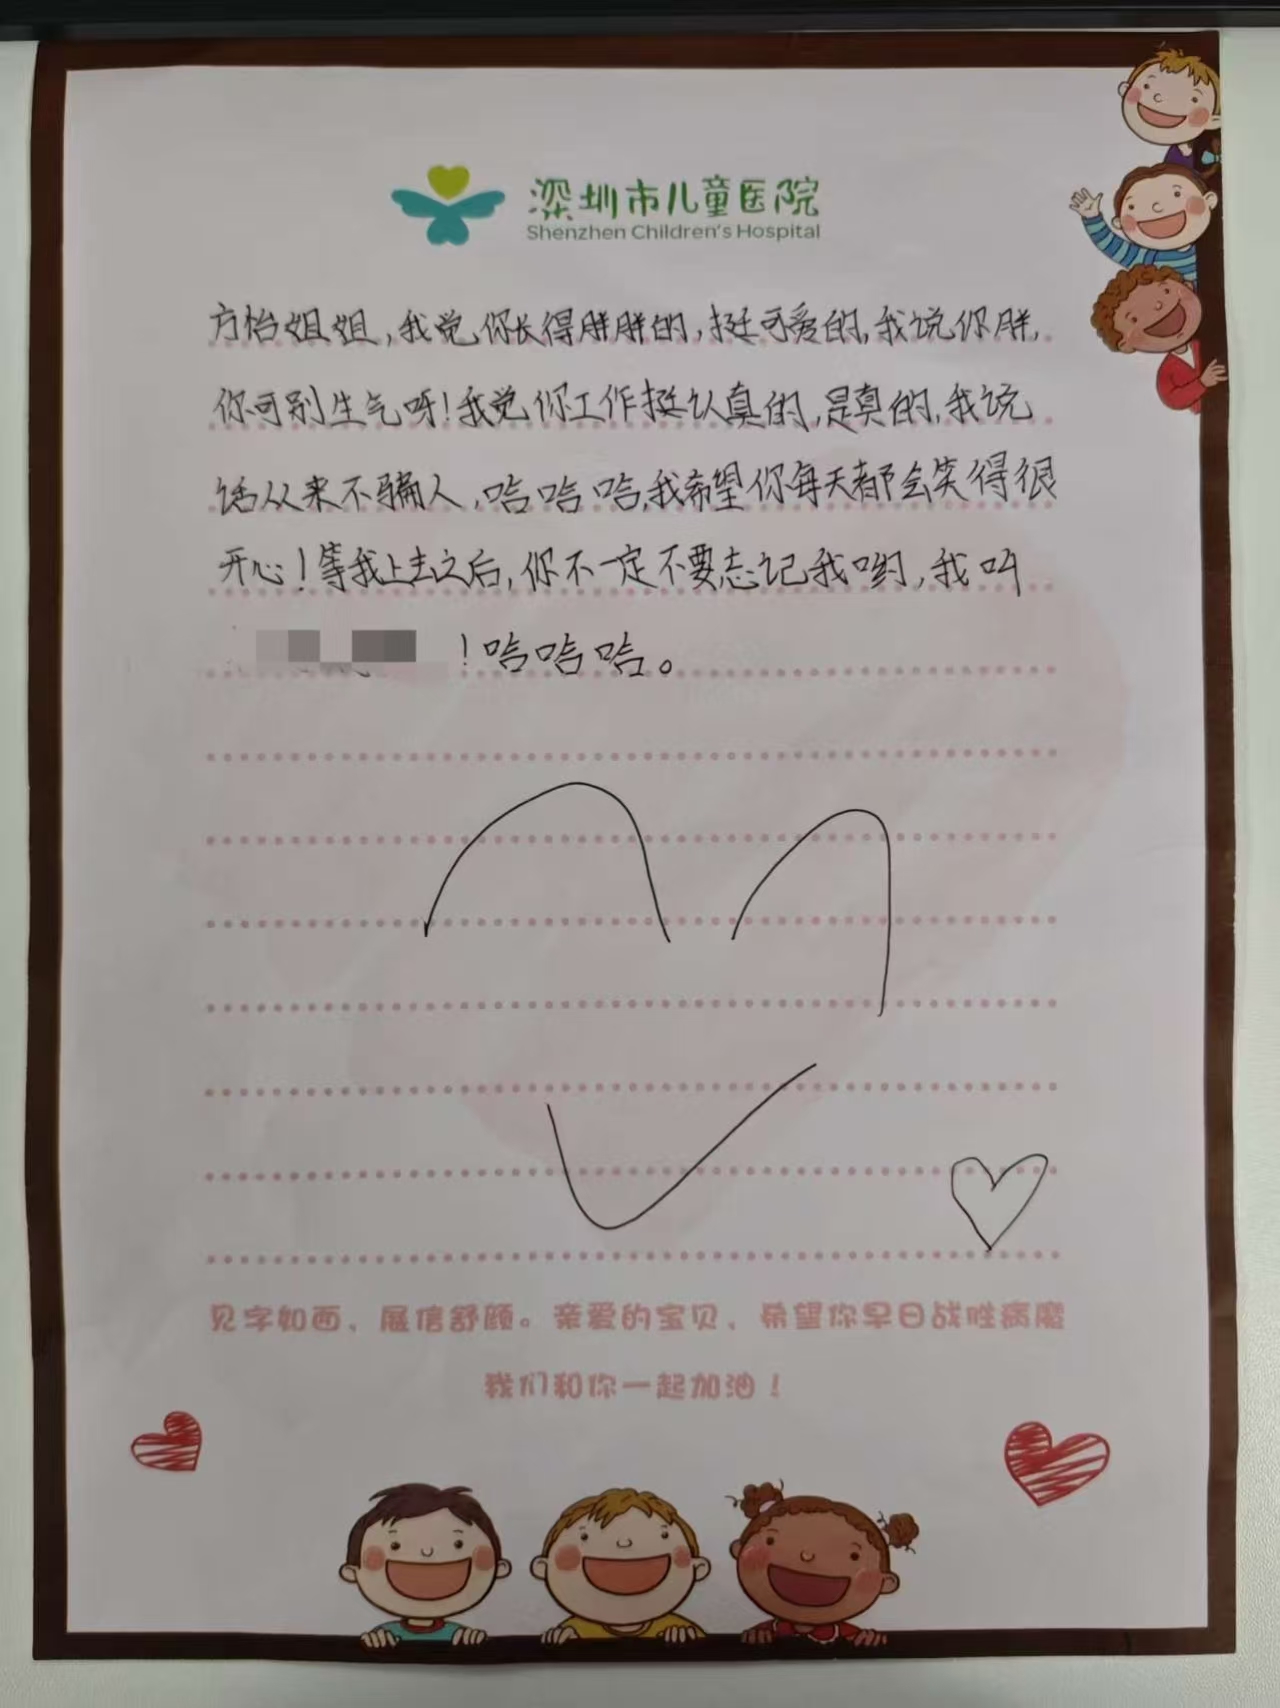 深圳市儿童医院
Shenzhen Children's Hospital
方怡姐姐，我觉你长得胖胖的，挺可爱的，我说你胖，
你可别生气呀！我觉你工作挺认真的，是真的，我说
话从来不骗人，哈哈哈，我希望你每天都会笑得很
开心！等我上去之后，你不一定不要忘记我哟，我叫
！哈哈哈。
见字如面，展信舒颜。亲爱的宝贝，希望你早日战胜病魔
我们和你一起加油！